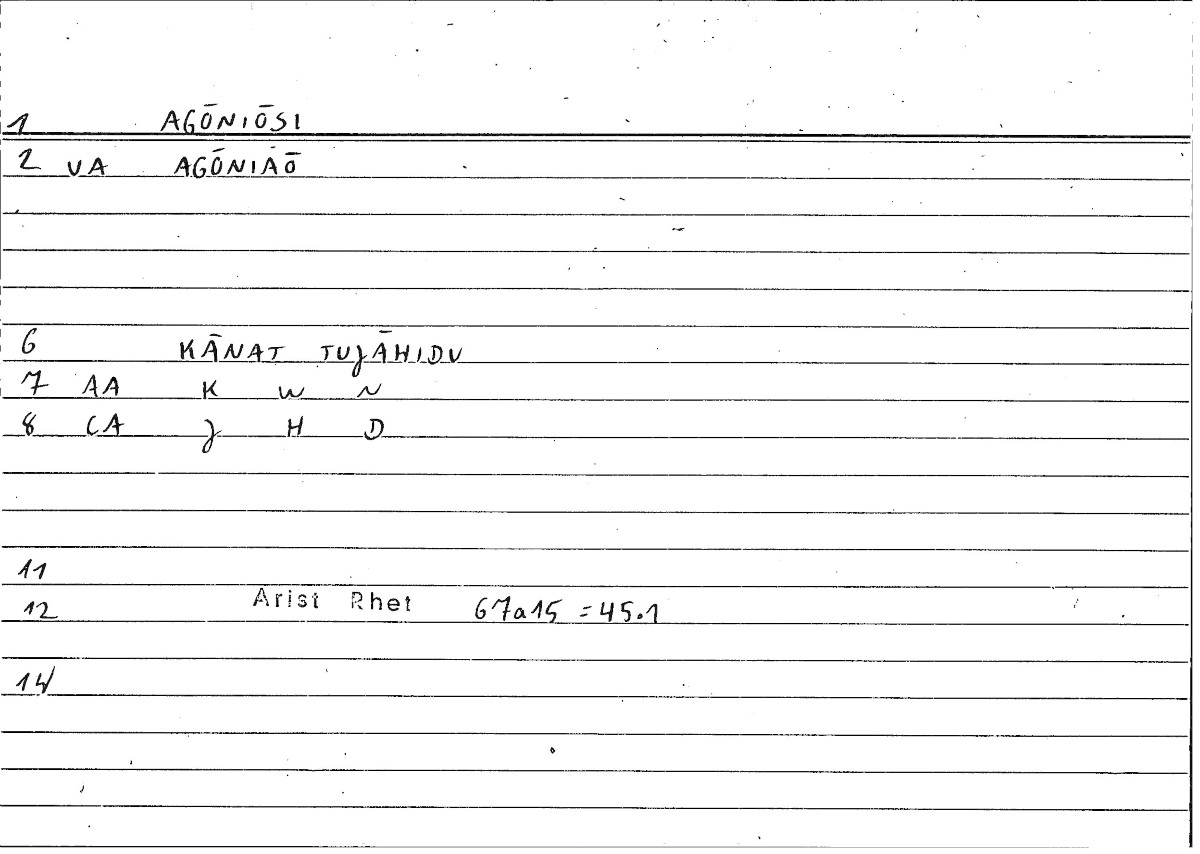 1 AGŌNIŌSI
2 VA AGŌNIAŌ
6 KĀNAT TUJĀHIDU
7 AA K W N
8 CA J H D
11
12 Arist Rhet 67a15 = 45.1
14